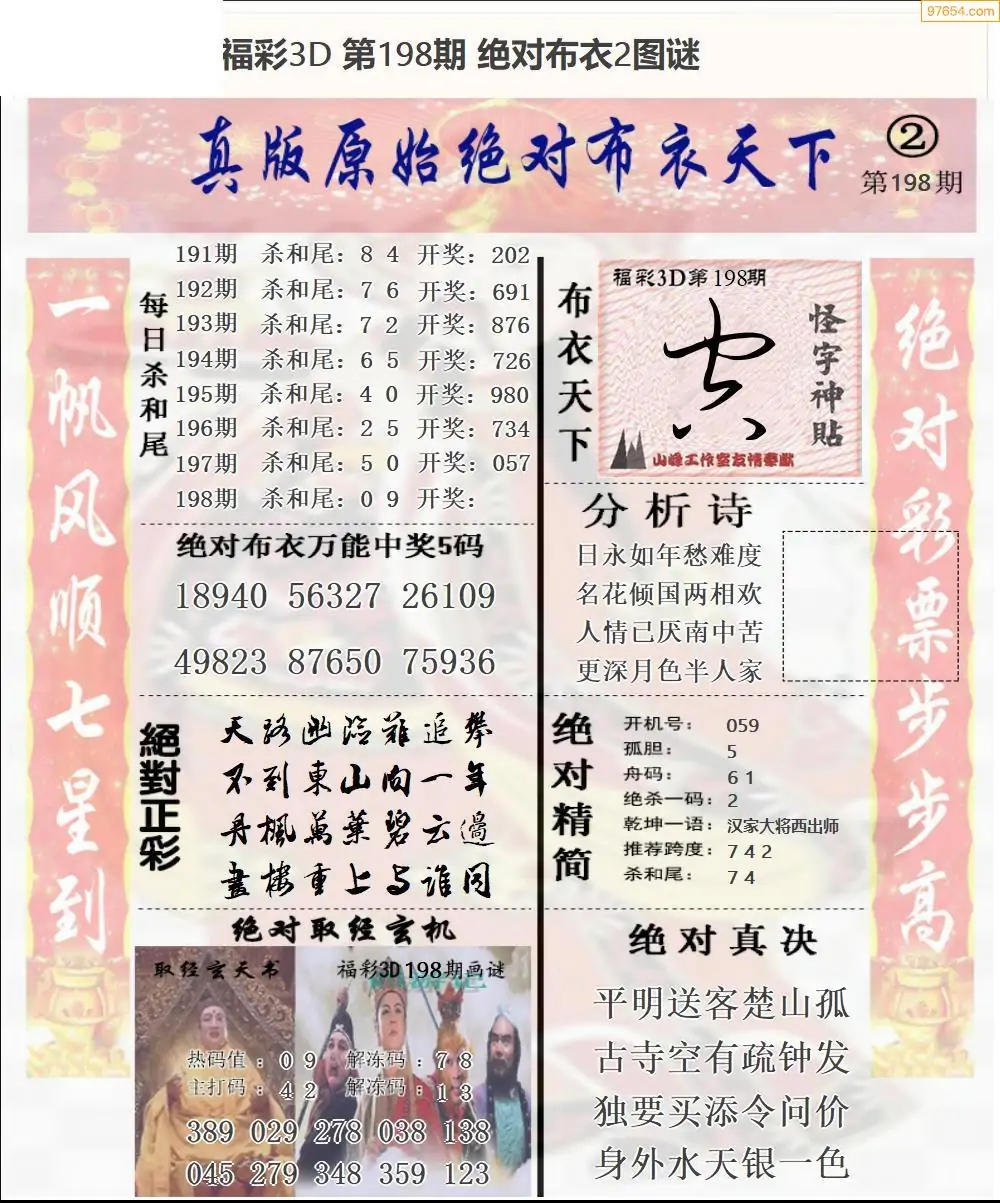 97654.com
福彩3D 第198期 绝对布衣2图谜
真版原始绝对布衣天下
②
第198期
一帆风顺七星到
每日杀和尾
191期 杀和尾：8 4 开奖：202
192期 杀和尾：7 6 开奖：691
193期 杀和尾：7 2 开奖：876
194期 杀和尾：6 5 开奖：726
195期 杀和尾：4 0 开奖：980
196期 杀和尾：2 5 开奖：734
197期 杀和尾：5 0 开奖：057
198期 杀和尾：0 9 开奖：
绝对布衣万能中奖5码
18940 56327 26109
49823 87650 75936
絕對正彩
天路幽险難追攀
不到東山向一年
丹楓萬葉碧云邊
畫楼重上与谁同
绝对取经玄机
取经玄天书
福彩3D198期画谜
热码值：0 9 解冻码：7 8
主打码：4 2 解冻码：1 3
389 029 278 038 138
045 279 348 359 123
布衣天下
福彩3D第198期
怪字神貼
山峰工作室友情奉献
分析诗
日永如年愁难度
名花倾国两相欢
人情已厌南中苦
更深月色半人家
绝对精简
开机号： 059
孤胆： 5
舟码： 6 1
绝杀一码：2
乾坤一语：汉家大将西出师
推荐跨度：7 4 2
杀和尾： 7 4
绝对真决
平明送客楚山孤
古寺空有疏钟发
独要买添令问价
身外水天银一色
绝对彩票步步高